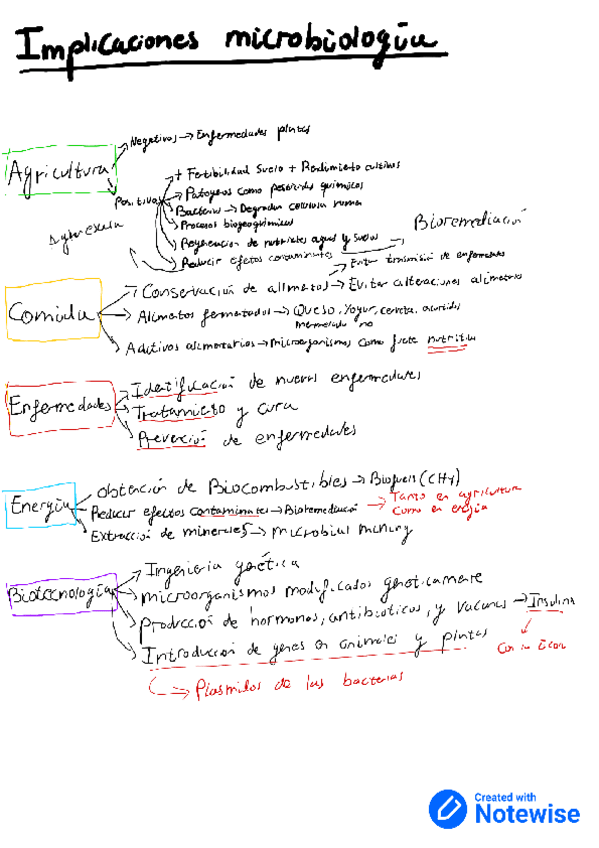 Implicaciones microbiología
Agricultura
Negativos → Enfermedades plantas
Positivos
+ Fertibilidad suelo + Rendimiento cultivos
Patogenos como pesticidas quimicos
Bacterias → Degradan celulosa rumen
Procesos biogeoquimicos
Regeneracion de nutrientes aguas y suelos
Reducir efectos contaminantes
Bioremediación
Comida
Conservación de alimentos → Evitar transmision de enfermedades
→ Evitar alteraciones alimentos
Alimentos fermentados → Queso, Yogur, cerveza,
mermelada no
Aditivos alimentarios → microorganismos como fuente nutritiva
Enfermedades
Identificación de nuevas enfermedades
Tratamiento y cura
Prevención de enfermedades
Energía
obtención de Biocombustibles → Biofuels (CH4)
Reducir efectos contaminantes → Bioremediación → Tanto en agricultura
como en energia
Extracción de minerales → microbial mining
Biotecnología
Ingenieria genética
microorganismos modificados geneticamente
producción de hormonas, antibioticos, y vacunas → Insulina
con la Ecoli
Introducción de genes en animales y plantas
→ Plasmidos de las bacterias
Created with
Notewise